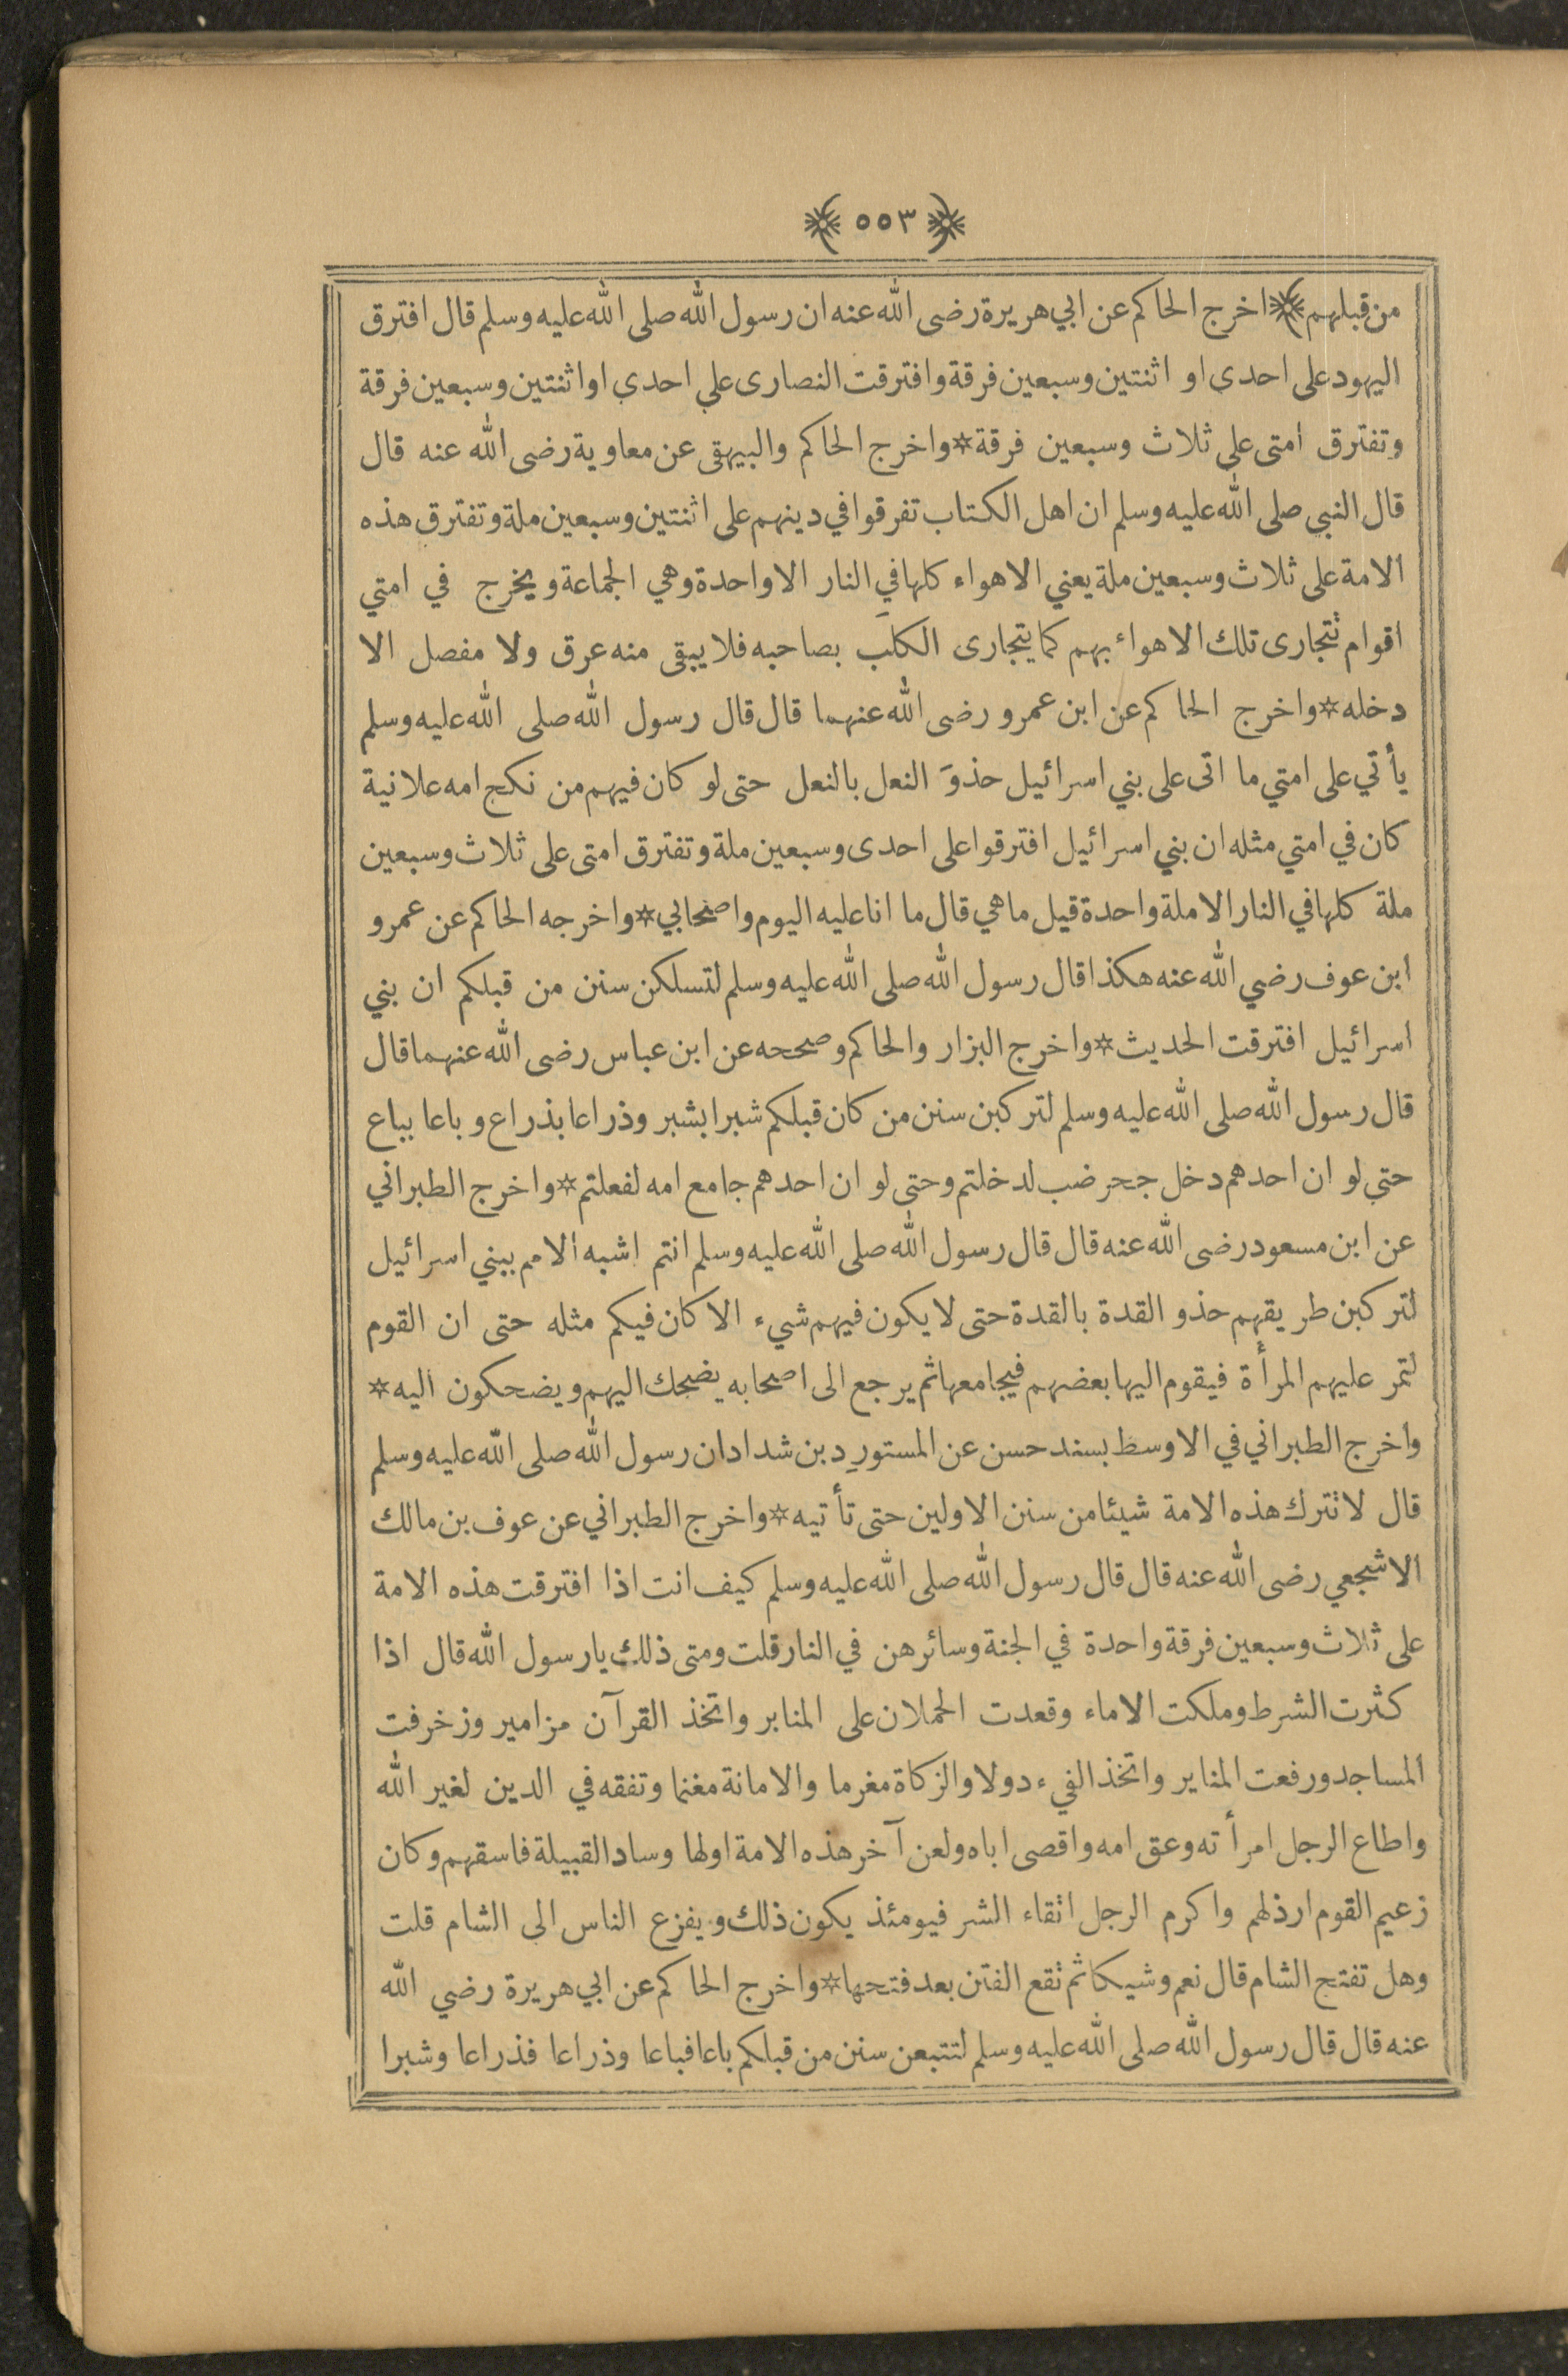 ﴿ ٥٥٣ ﴾
من قبلهم ﴾ اخرج الحاكم عن ابي هريرة رضى الله عنه ان رسول الله صلى الله عليه وسلم قال افترق
اليهود على احدى او اثنتين وسبعين فرقة وافترقت النصارى على احدى او اثنتين وسبعين فرقة
وتفترق امتى على ثلاث وسبعين فرقة * واخرج الحاكم والبيهقى عن معاوية رضى الله عنه قال
قال النبى صلى الله عليه وسلم ان اهل الكتاب تفرقوا في دينهم على اثنتين وسبعين ملة وتفترق هذه
الامة على ثلاث وسبعين ملة يعني الاهواء كلها في النار الا واحدة وهي الجماعة ويخرج في امتي
اقوام تتجارى تلك الاهواء بهم كما يتجارى الكلَب بصاحبه فلا يبقى منه عرق ولا مفصل الا
دخله * واخرج الحاكم عن ابن عمرو رضى الله عنهما قال قال رسول الله صلى الله عليه وسلم
يأتي على امتي ما اتى على بني اسرائيل حذوَ النعل بالنعل حتى لو كان فيهم من نكح امه علانية
كان في امتي مثله ان بني اسرائيل افترقوا على احدى وسبعين ملة وتفترق امتى على ثلاث وسبعين
ملة كلها في النار الا ملة واحدة قيل ما هي قال ما انا عليه اليوم واصحابي * واخرجه الحاكم عن عمرو
ابن عوف رضي الله عنه هكذا قال رسول الله صلى الله عليه وسلم لتسلكن سنن من قبلكم ان بني
اسرائيل افترقت الحديث * واخرج البزار والحاكم وصححه عن ابن عباس رضى الله عنهما قال
قال رسول الله صلى الله عليه وسلم لتركبن سنن من كان قبلكم شبرا بشبر وذراعا بذراع وباعا بباع
حتى لو ان احدهم دخل جحر ضب لدخلتم وحتى لو ان احدهم جامع امه لفعلتم * واخرج الطبراني
عن ابن مسعود رضى الله عنه قال قال رسول الله صلى الله عليه وسلم انتم اشبه الامم ببني اسرائيل
لتركبن طريقهم حذو القدة بالقدة حتى لا يكون فيهم شيء الا كان فيكم مثله حتى ان القوم
لتمر عليهم المرأة فيقوم اليها بعضهم فيجامعها ثم يرجع الى اصحابه يضحك اليهم ويضحكون اليه *
واخرج الطبراني في الاوسط بسند حسن عن المستورِد بن شداد ان رسول الله صلى الله عليه وسلم
قال لا تترك هذه الامة شيئا من سنن الاولين حتى تأتيه * واخرج الطبراني عن عوف بن مالك
الاشجعي رضى الله عنه قال قال رسول الله صلى الله عليه وسلم كيف انت اذا افترقت هذه الامة
على ثلاث وسبعين فرقة واحدة في الجنة وسائرهن في النار قلت ومتى ذلك يا رسول الله قال اذا
كثرت الشرط وملكت الاماء وقعدت الحملان على المنابر واتخذ القرآن مزامير وزخرفت
المساجد ورفعت المنابر واتخذ الفيء دولا والزكاة مغرما والامانة مغنما وتفقه في الدين لغير الله
واطاع الرجل امرأته وعق امه واقصى اباه ولعن آخر هذه الامة اولها وساد القبيلة فاسقهم وكان
زعيم القوم ارذلهم واكرم الرجل اتقاء الشر فيومئذ يكون ذلك ويفزع الناس الى الشام قلت
وهل تفتح الشام قال نعم وشيكا ثم تقع الفتن بعد فتحها * واخرج الحاكم عن ابي هريرة رضي الله
عنه قال قال رسول الله صلى الله عليه وسلم لتتبعن سنن من قبلكم باعا فباعا وذراعا فذراعا وشبرا